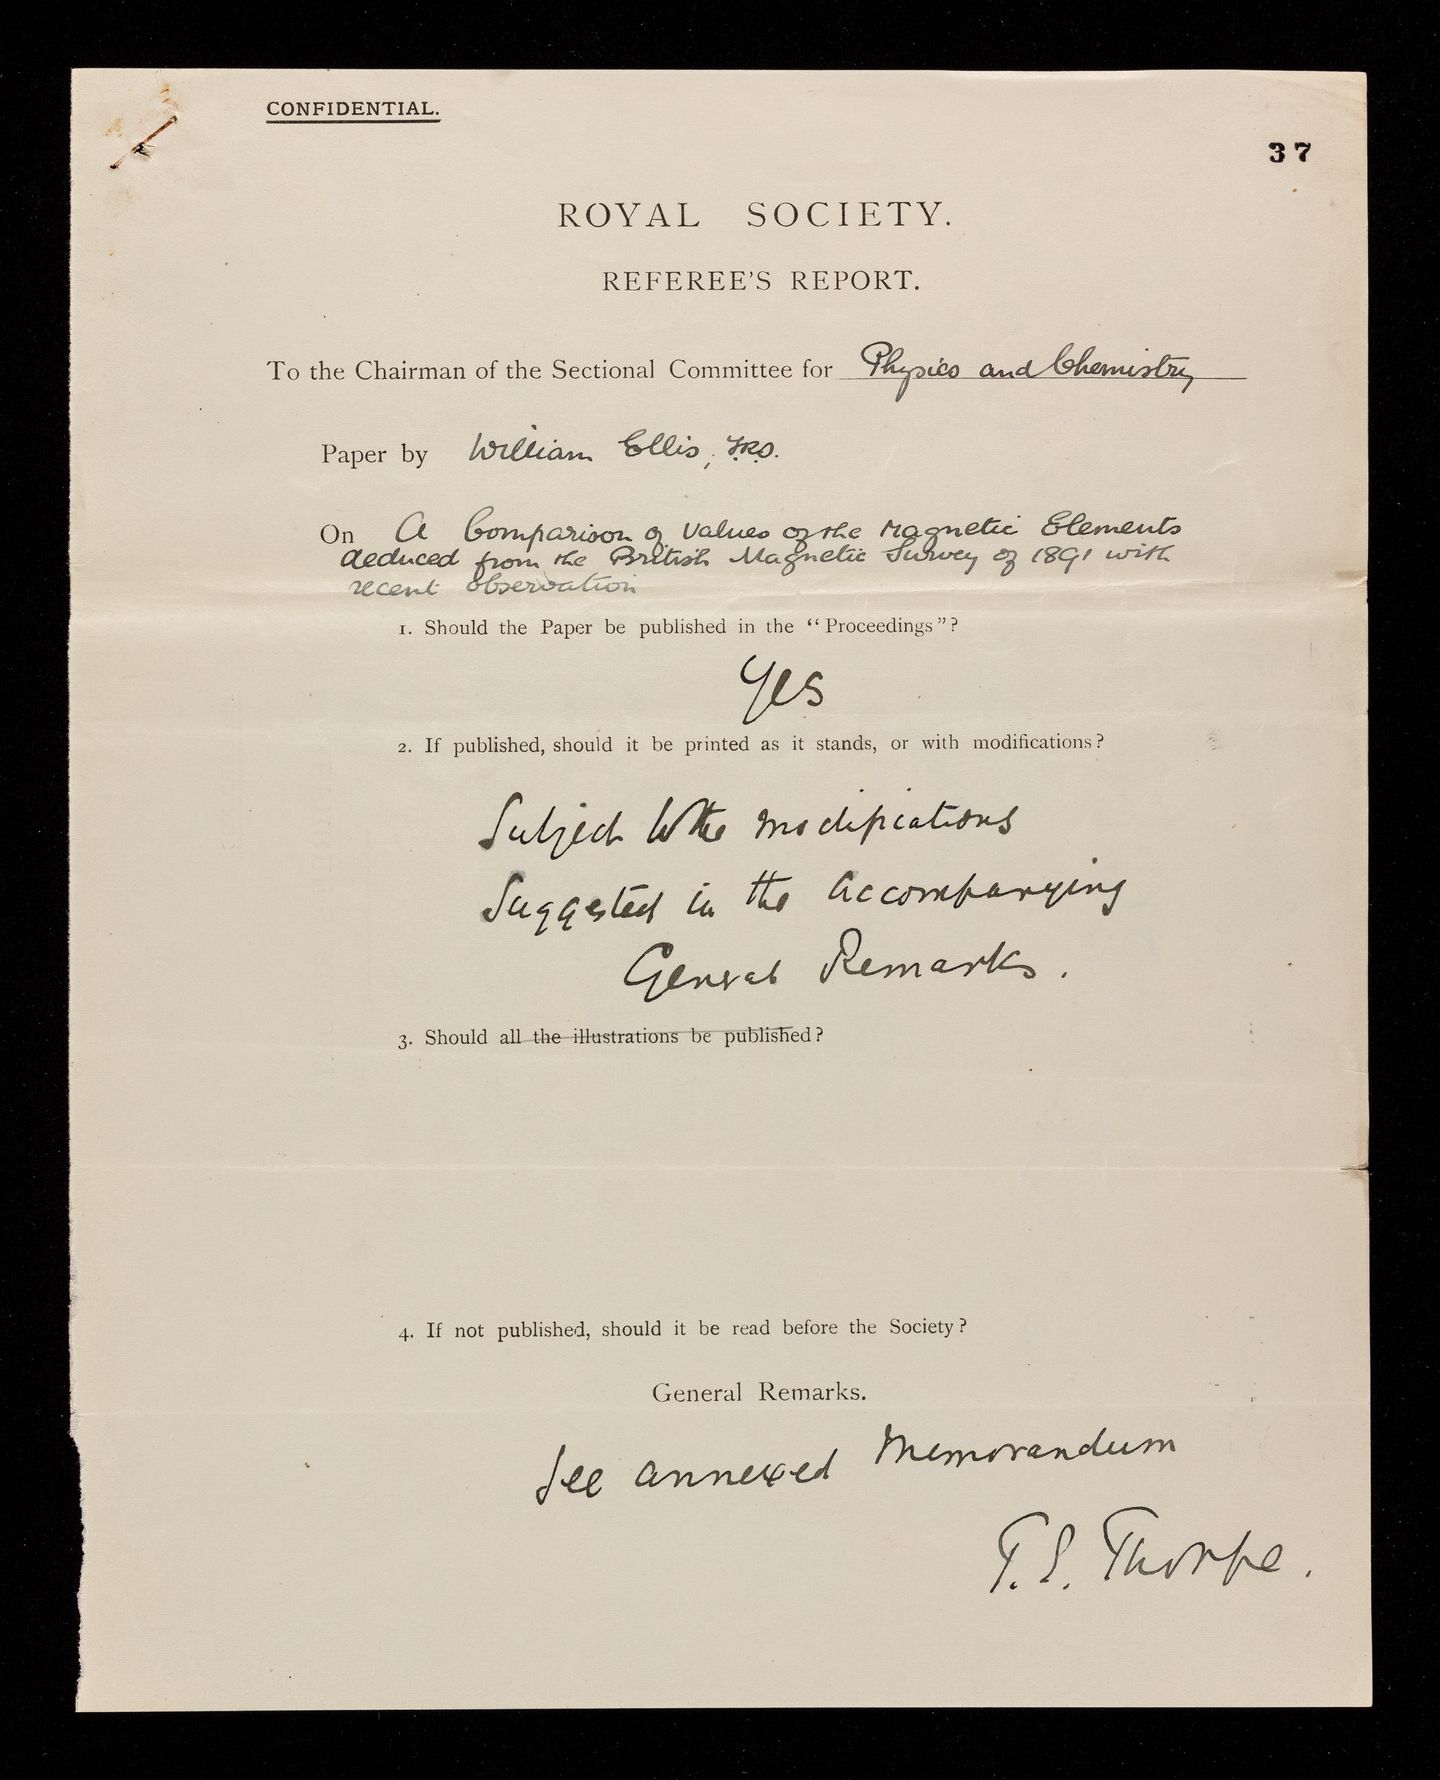 CONFIDENTIAL.
37
ROYAL SOCIETY.
REFEREE'S REPORT.
To the Chairman of the Sectional Committee for Physics and Chemistry
Paper by William Ellis, F.R.S.
On A Comparison of values of the Magnetic Elements
deduced from the British Magnetic Survey of 1891 with
recent observation
1. Should the Paper be published in the “Proceedings”?
Yes
2. If published, should it be printed as it stands, or with modifications?
Subject to the modifications
suggested in the accompanying
General Remarks.
3. Should all the illustrations be published?
4. If not published, should it be read before the Society?
General Remarks.
See annexed Memorandum
T. E. Thorpe.